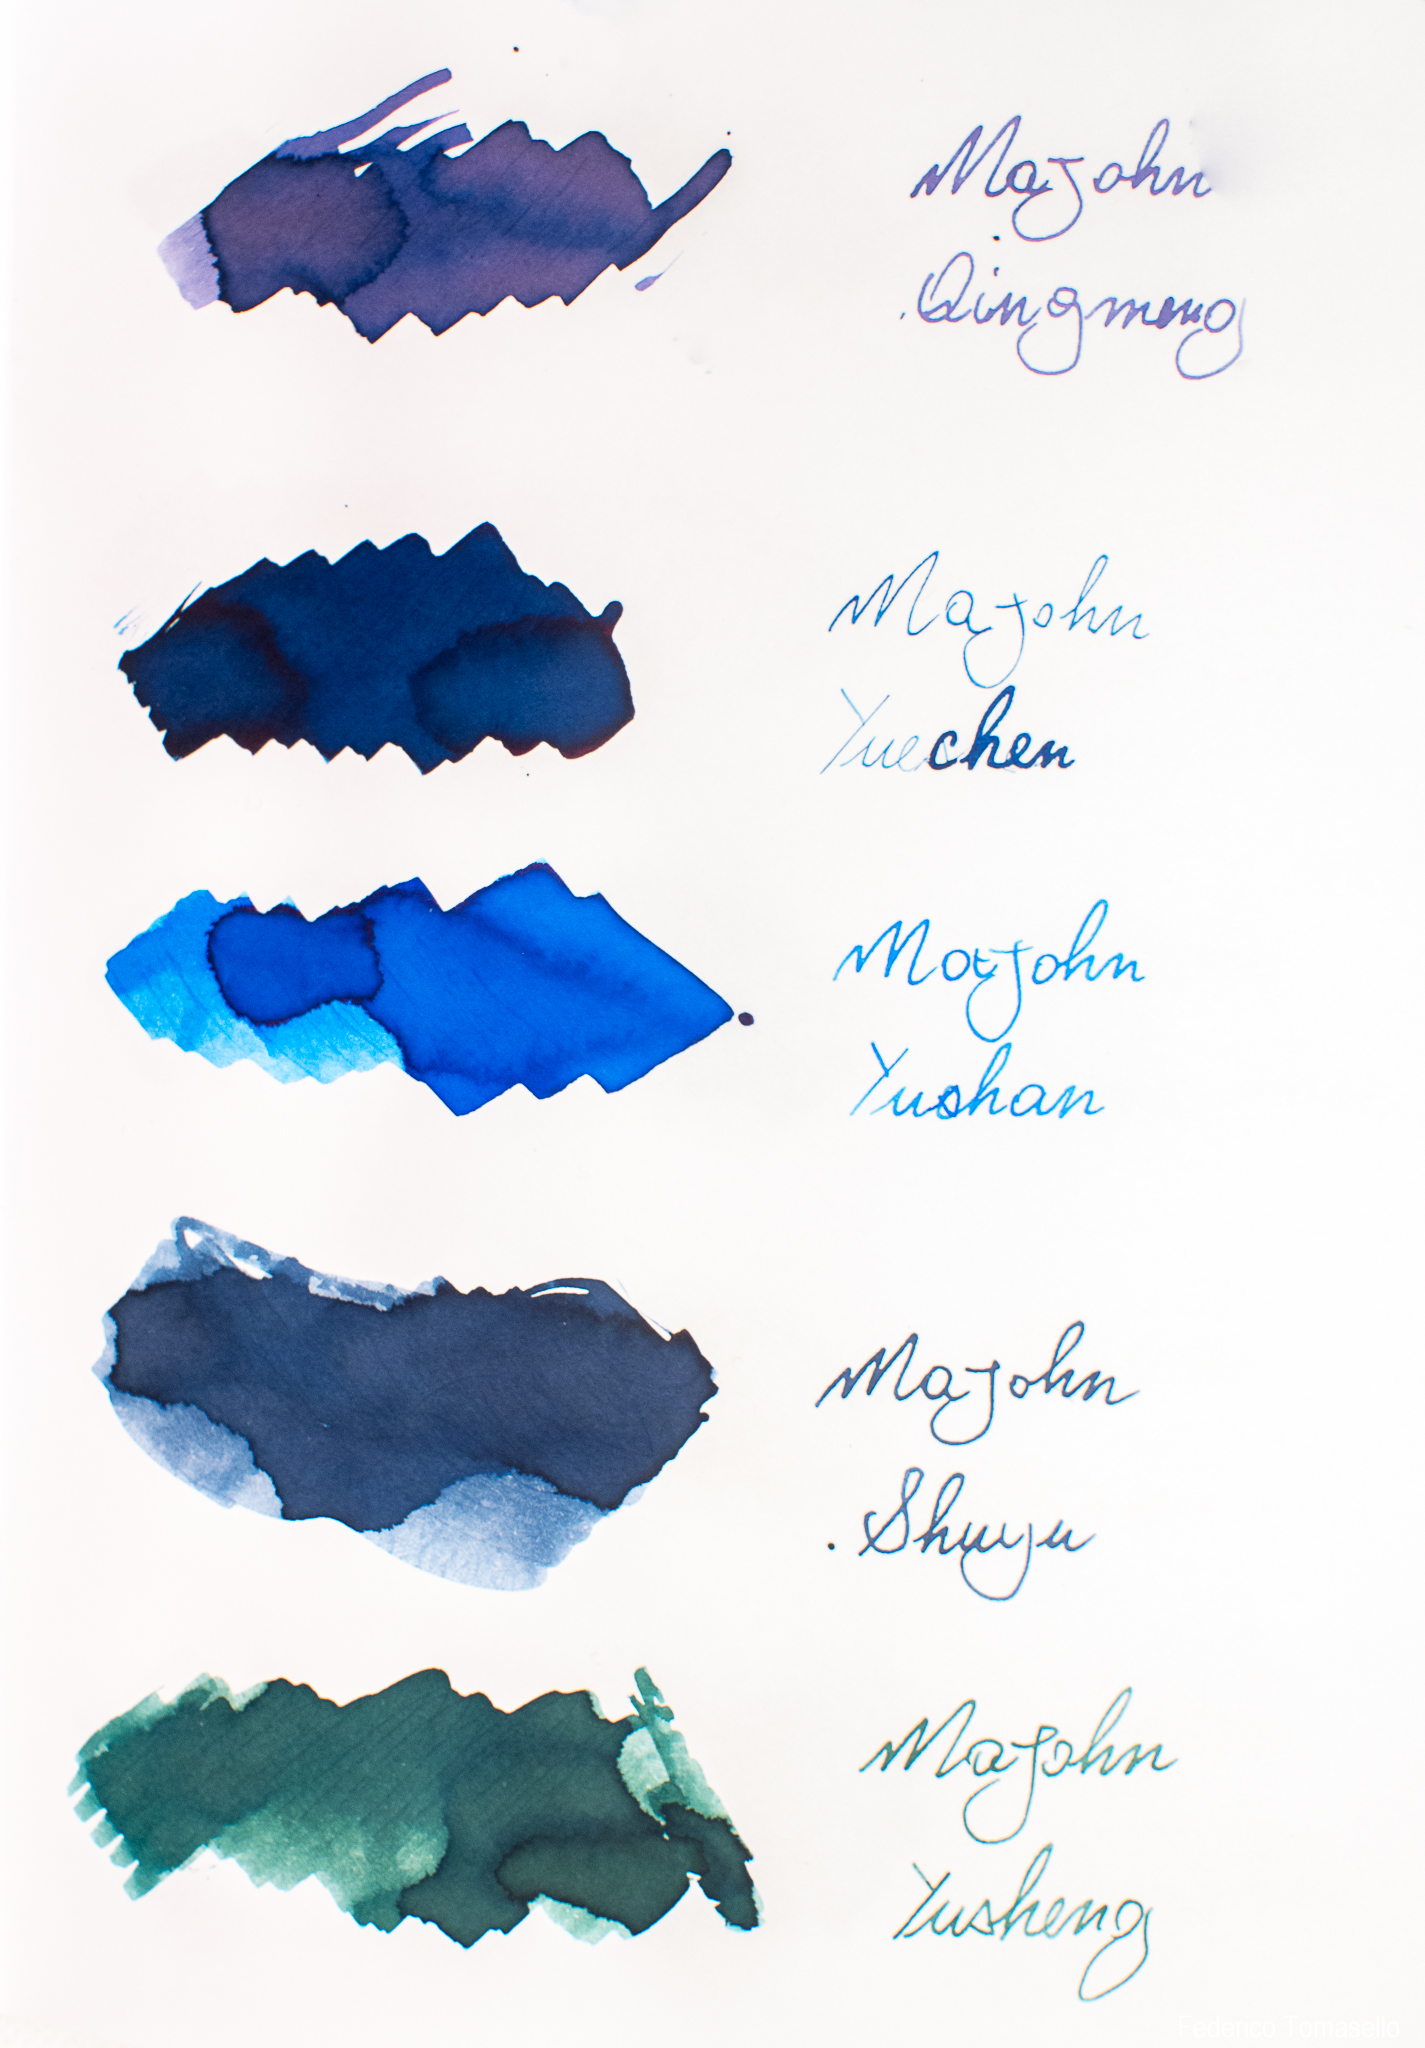 Majohn
Qingmeng
Majohn
Yuechen
Majohn
Yushan
Majohn
Shuyu
Majohn
Yusheng
Federico Tomasello